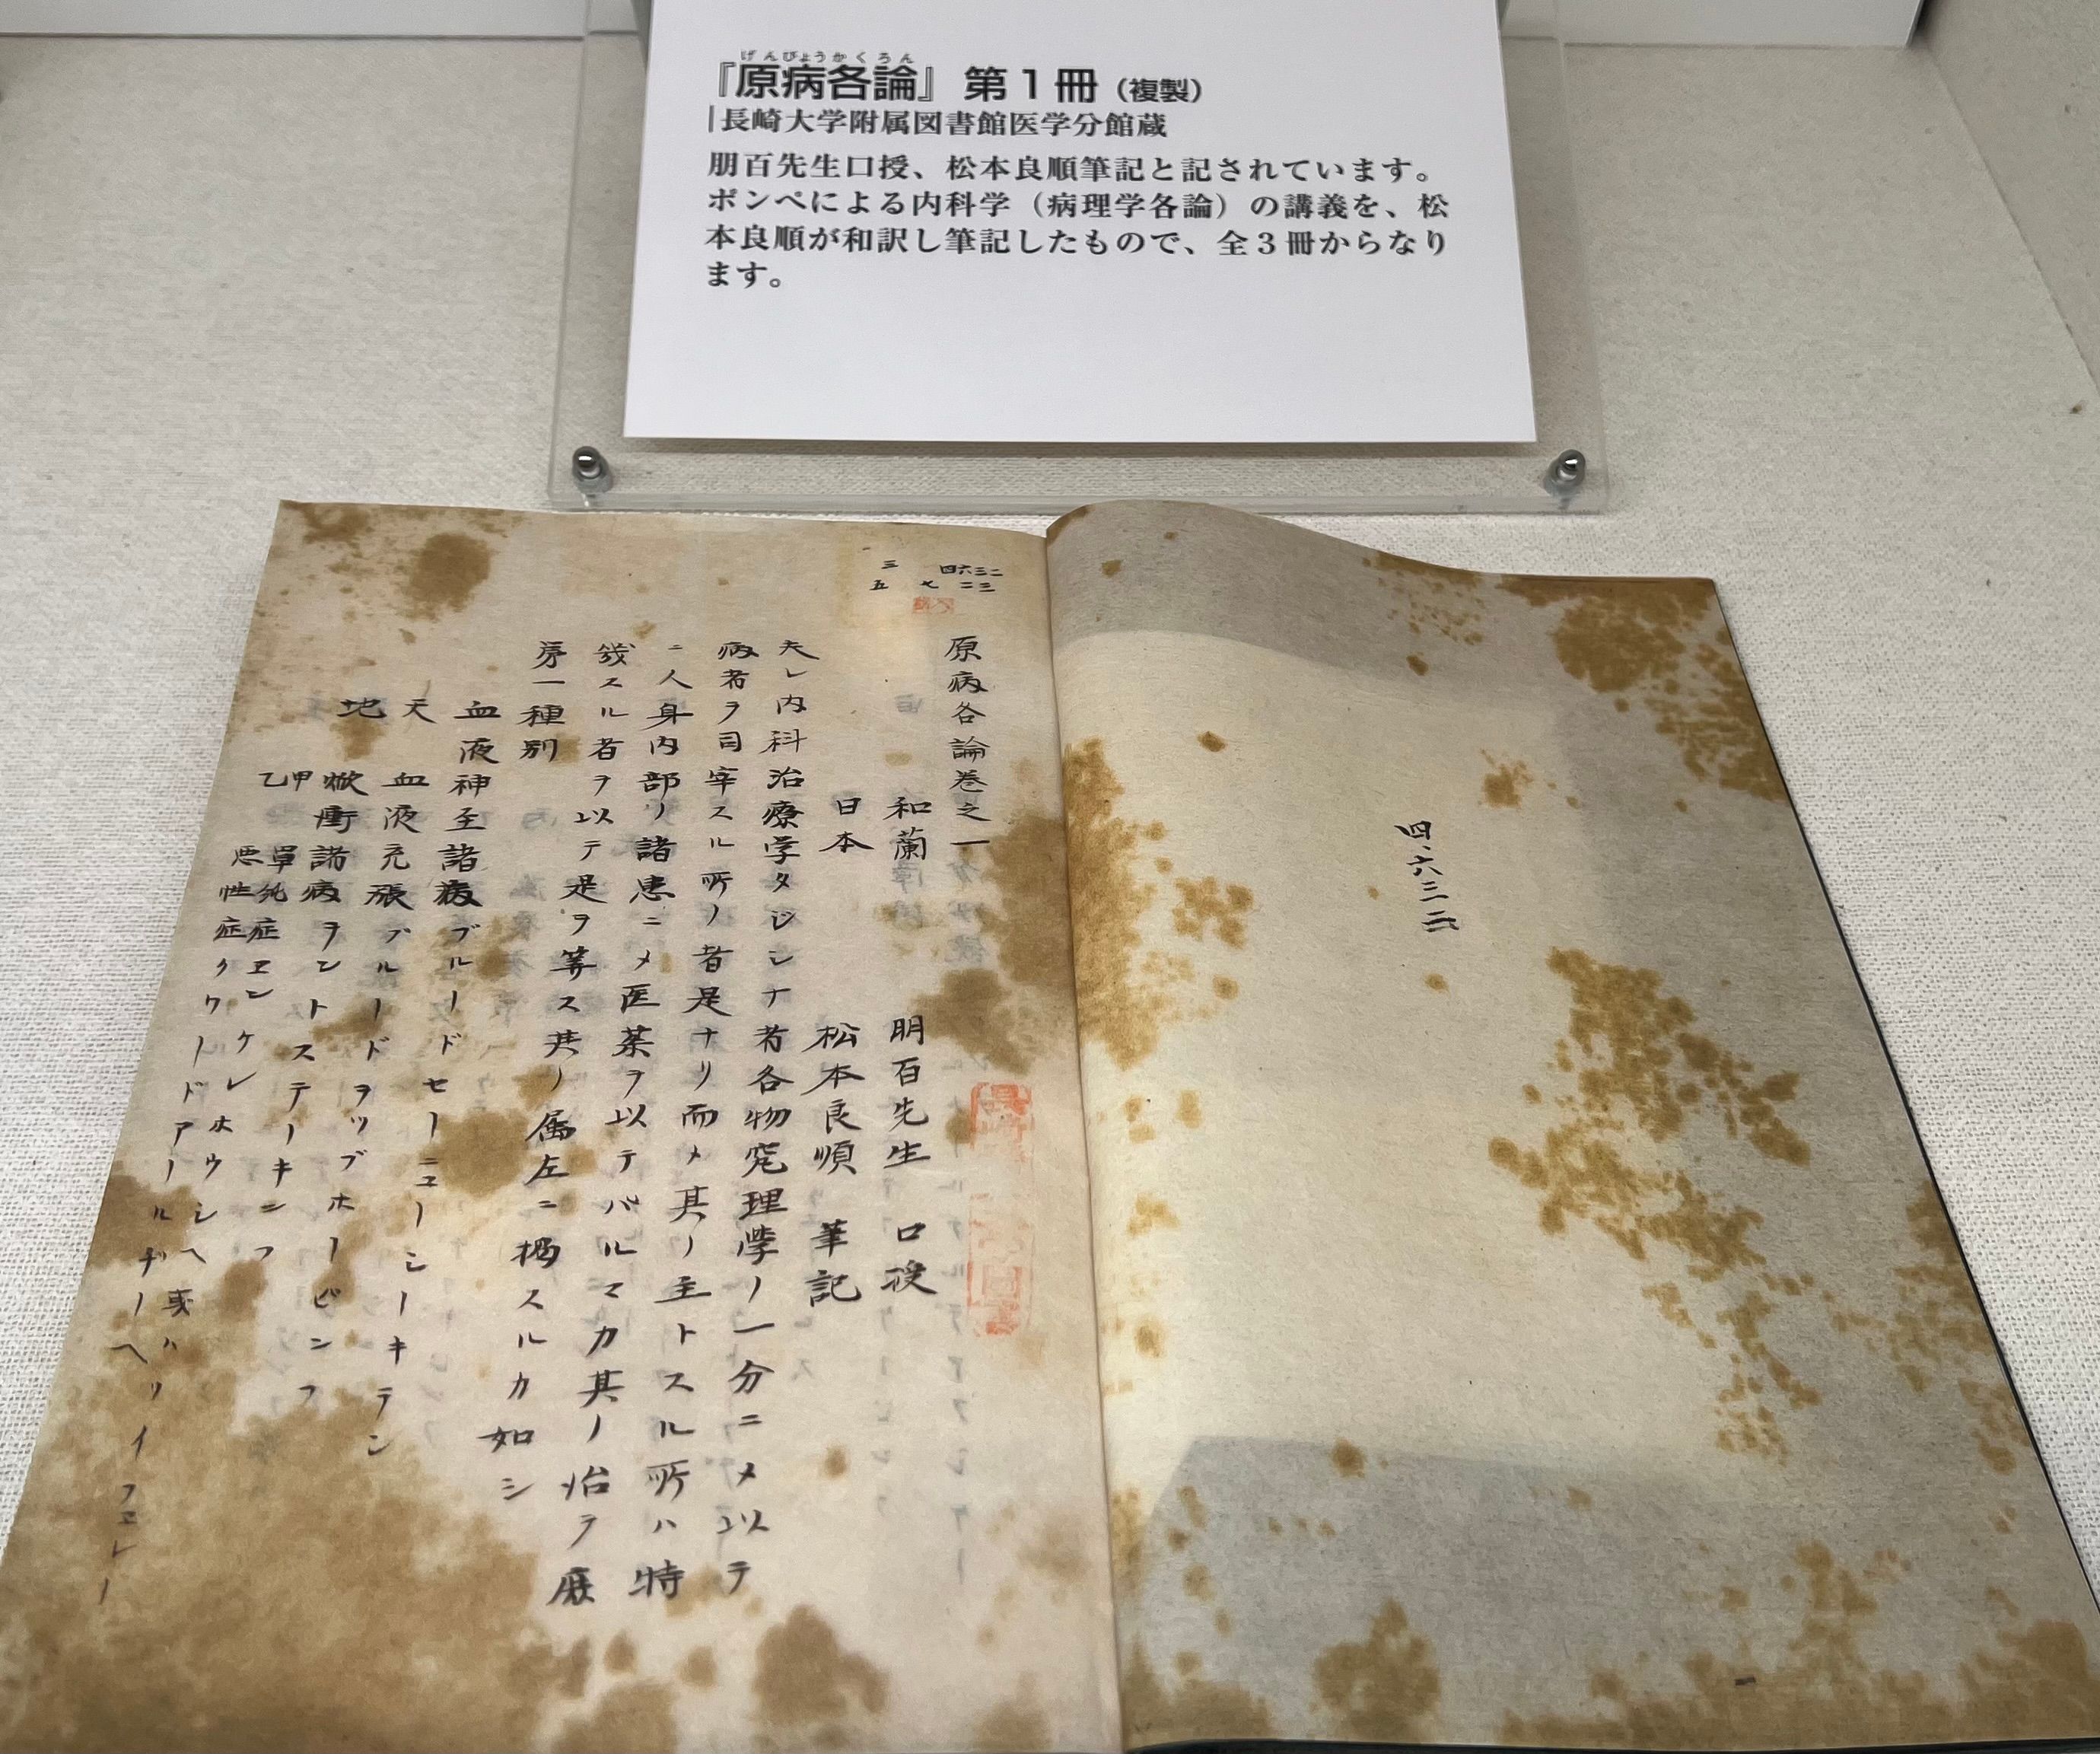 げんびょうかくろん
『原病各論』 第1冊（複製）
|長崎大学附属図書館医学分館蔵
朋百先生口授、松本良順筆記と記されています。
ポンペによる内科学（病理学各論）の講義を、松
本良順が和訳し筆記したもので、全3冊からなり
ます。
四六三二
原病各論巻之一
和蘭 朋百先生 口授
日本 松本良順 筆記
夫レ内科治療学タジシナ者各物究理學ノ一分ニメ以テ
病者ヲ目宰スル所ノ者是ナリ而メ其ノ主トスル所ハ特
ニ人身内部ノ諸患ニメ医薬ヲ以テバルマカ其ノ治ヲ
スル者ヲ以テ是ヲ等ス其ノ属左ニ掲スルカ如シ
第一種別
血液神至諸病ブルードセーニューシーキテン
天 血液充張ブルードヲップホーピンフ
地 焮衝諸病ヲントステーキンフ
甲 単純症エンケレホウシヘ或ハ
乙 悪性症クワードアールチーヘリイフエレー